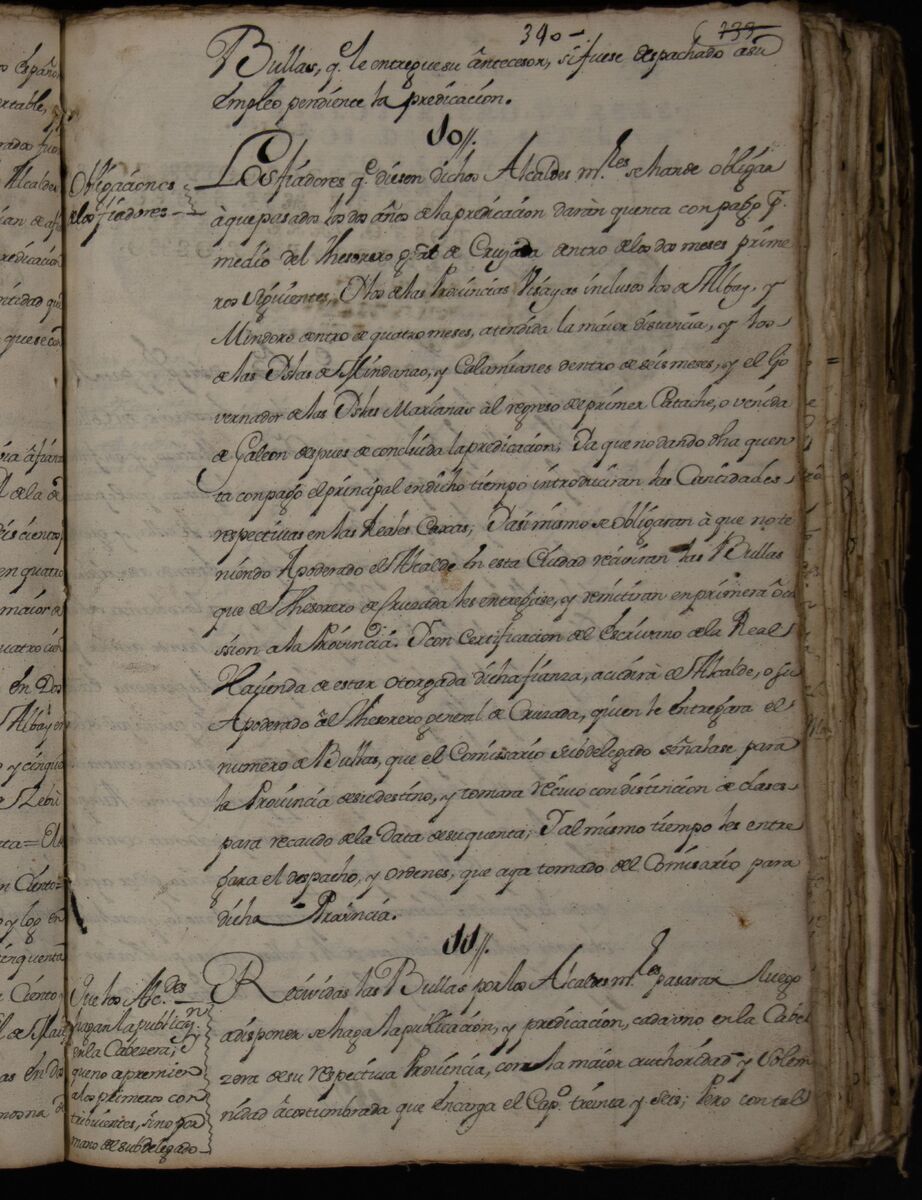 340-
Bullas, q.e le entregue su antecesor, si fuese despachado a su
empleo pendiente la predicacion.
10//.
Obligaciones
de los fiadores
Los fiadores q.e diesen dichos Alcaldes m.res se han de obligar
à que pasados los dos años de la predicacion daràn quenta con pago p.r
medio del Thesorero g.ral de Cruzada dentro de los dos meses prime
ros siguientes, Y los de las Provincias Visayas inclusos los de Albay, y
Mindoro dentro de quatro meses, atendida la maior distancia, y los
de las Yslas de Mindanao, y Calamianes dentro de seis meses, y el Go
vernador de las Yslas Marianas àl regreso de primer Patache, o venida
de Galeon despues de concluida la predicacion; Ya que no dando dha quen
ta con pago el principal en dicho tiempo introduciran las Cantidades
respectivas en las Reales Caxas; Y asi mismo se obligaran à que no te
niendo Apoderado el Alcalde en esta Ciudad reciviran las Bullas
que el Thesorero de Cruzada les entregase, y remitiran en primera oca
ssion a la Provincia. Y con Certificacion del Escrivano de la Real
Hazienda de estar otorgada dicha fianza, acudirà el Alcalde, o su
Apoderado àl Thesorero general de Cruzada, quien le entregara el
numero de Bullas, que el Comissario Subdelegado señalase para
la Provincia de su destino, y tomara recivo con distincion de clases
para recaudo de la Data de su quenta; Y al mismo tiempo les entre
gara el despacho, y ordenes, que aya tomado del Comisario para
dicha Provincia.
11//.
Que los Alc.des
hagan la publicaz.n
en la Cabezera, y
que no apremien
a los primeros con
tribuientes, sino por
mano del subdelegado
Recividas las Bullas por los Alcaldes m.res pasaran luego
a disponer se haga la publicacion, y predicacion, cada uno en la Cabe
zera de su respectiva Provincia, con la maior authoridad y Solem
nidad acostumbrada que encarga el Cap.o treinta y seis; Pero con tal